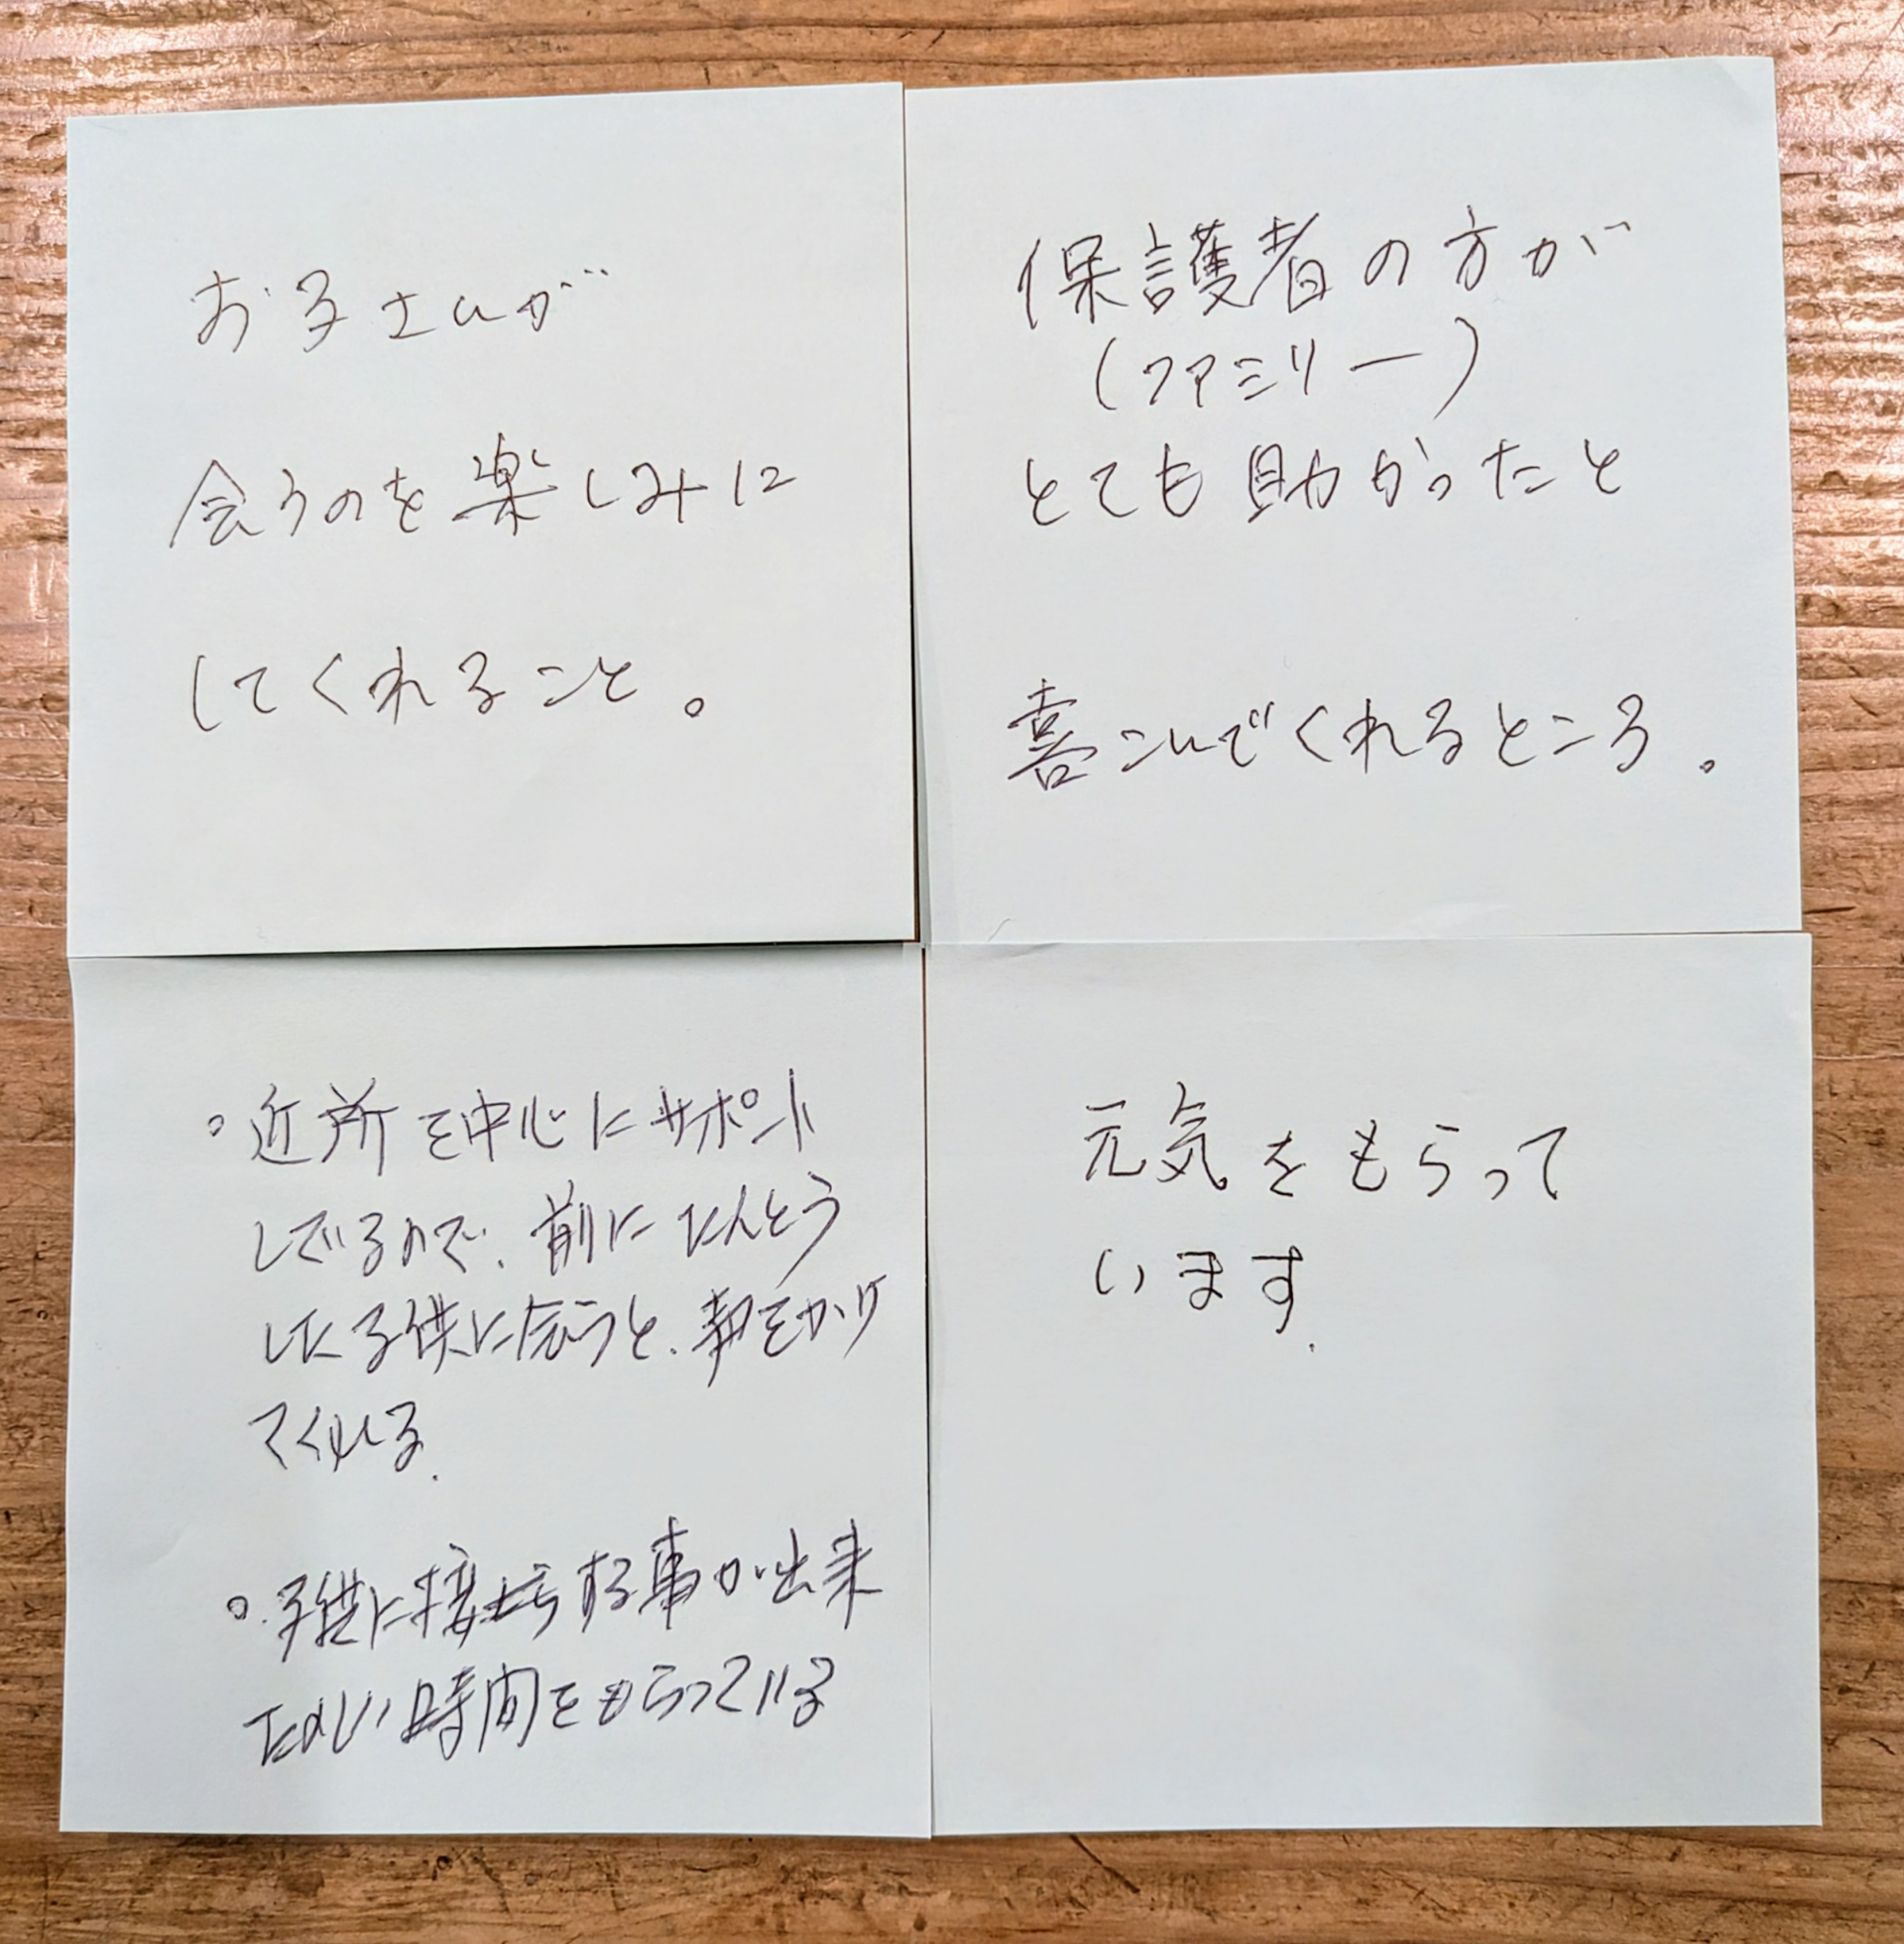 お子さんが
会うのを楽しみに
してくれること。
保護者の方が
(ファミリー)
とても助かったと
喜こんでくれるところ。
。近所を中心にサポート
しているので、前にたんとう
した子供に会うと、声をかけ
てくれる.
。子供に接する事が出来
たのしい時間をもらっている
元気をもらって
います.